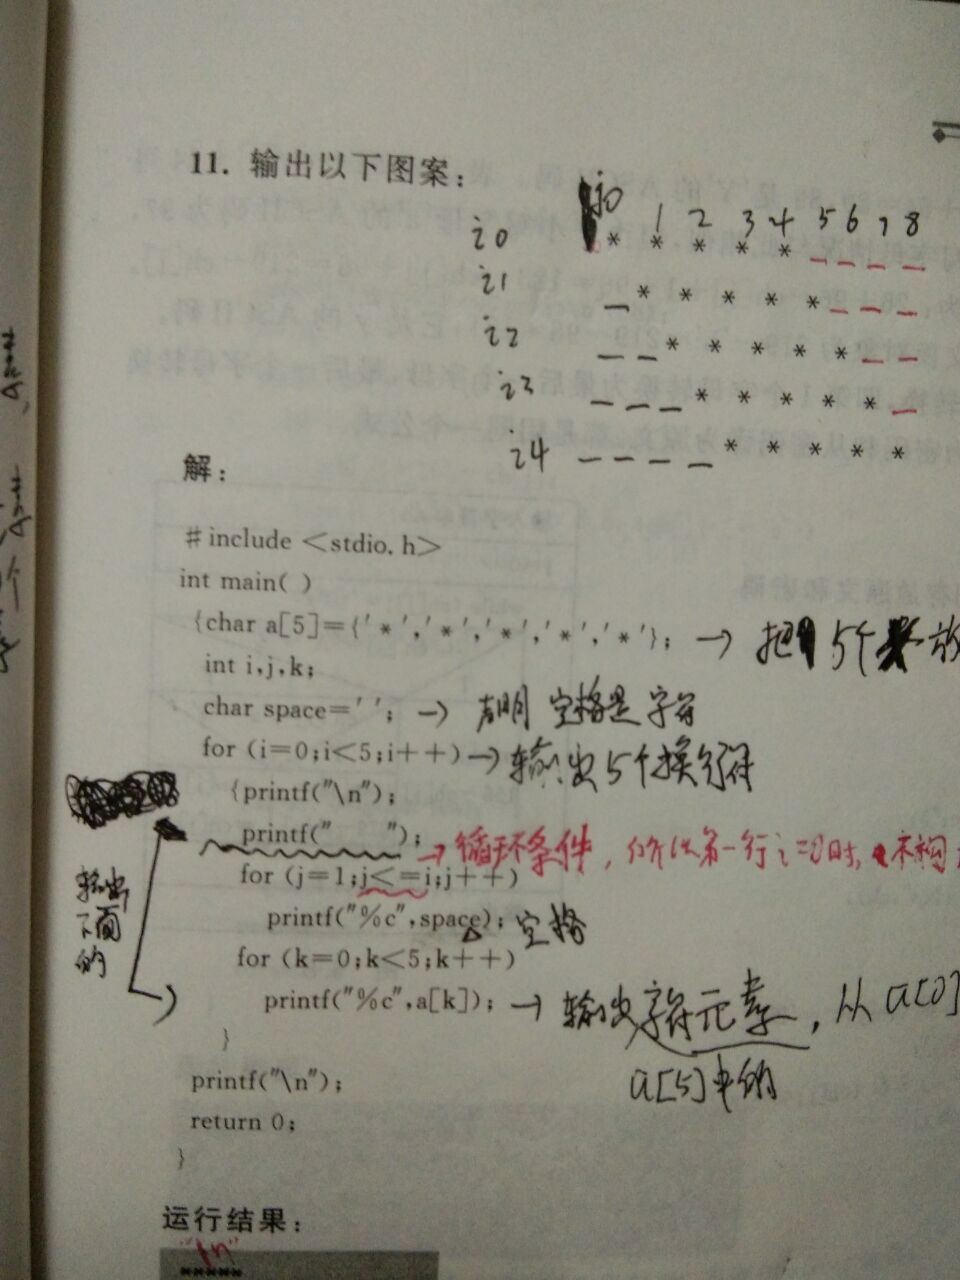 11. 输出以下图案:
j0 1 2 3 4 5 6 7 8
i0 * * * * * _ _ _ _
i1 _ * * * * * _ _ _
i2 _ _ * * * * * _ _
i3 _ _ _ * * * * * _
i4 _ _ _ _ * * * * *
解:
# include <stdio.h>
int main( )
{char a[5]={'*','*','*','*','*'}; → 把 5个 放
int i,j,k;
char space=' '; → 声明 空格是字符
for (i=0;i<5;i++) → 输出5个换行符
{printf("\n");
printf("    "); → 循环条件,
for (j=1;j<=i;j++)
printf("%c",space); 空格
for (k=0;k<5;k++)
printf("%c",a[k]); → 输出字符元素, 从 a[0]
a[5]中的
}
printf("\n");
return 0;
}
输出
下面
的
运行结果:
"\n"
*****